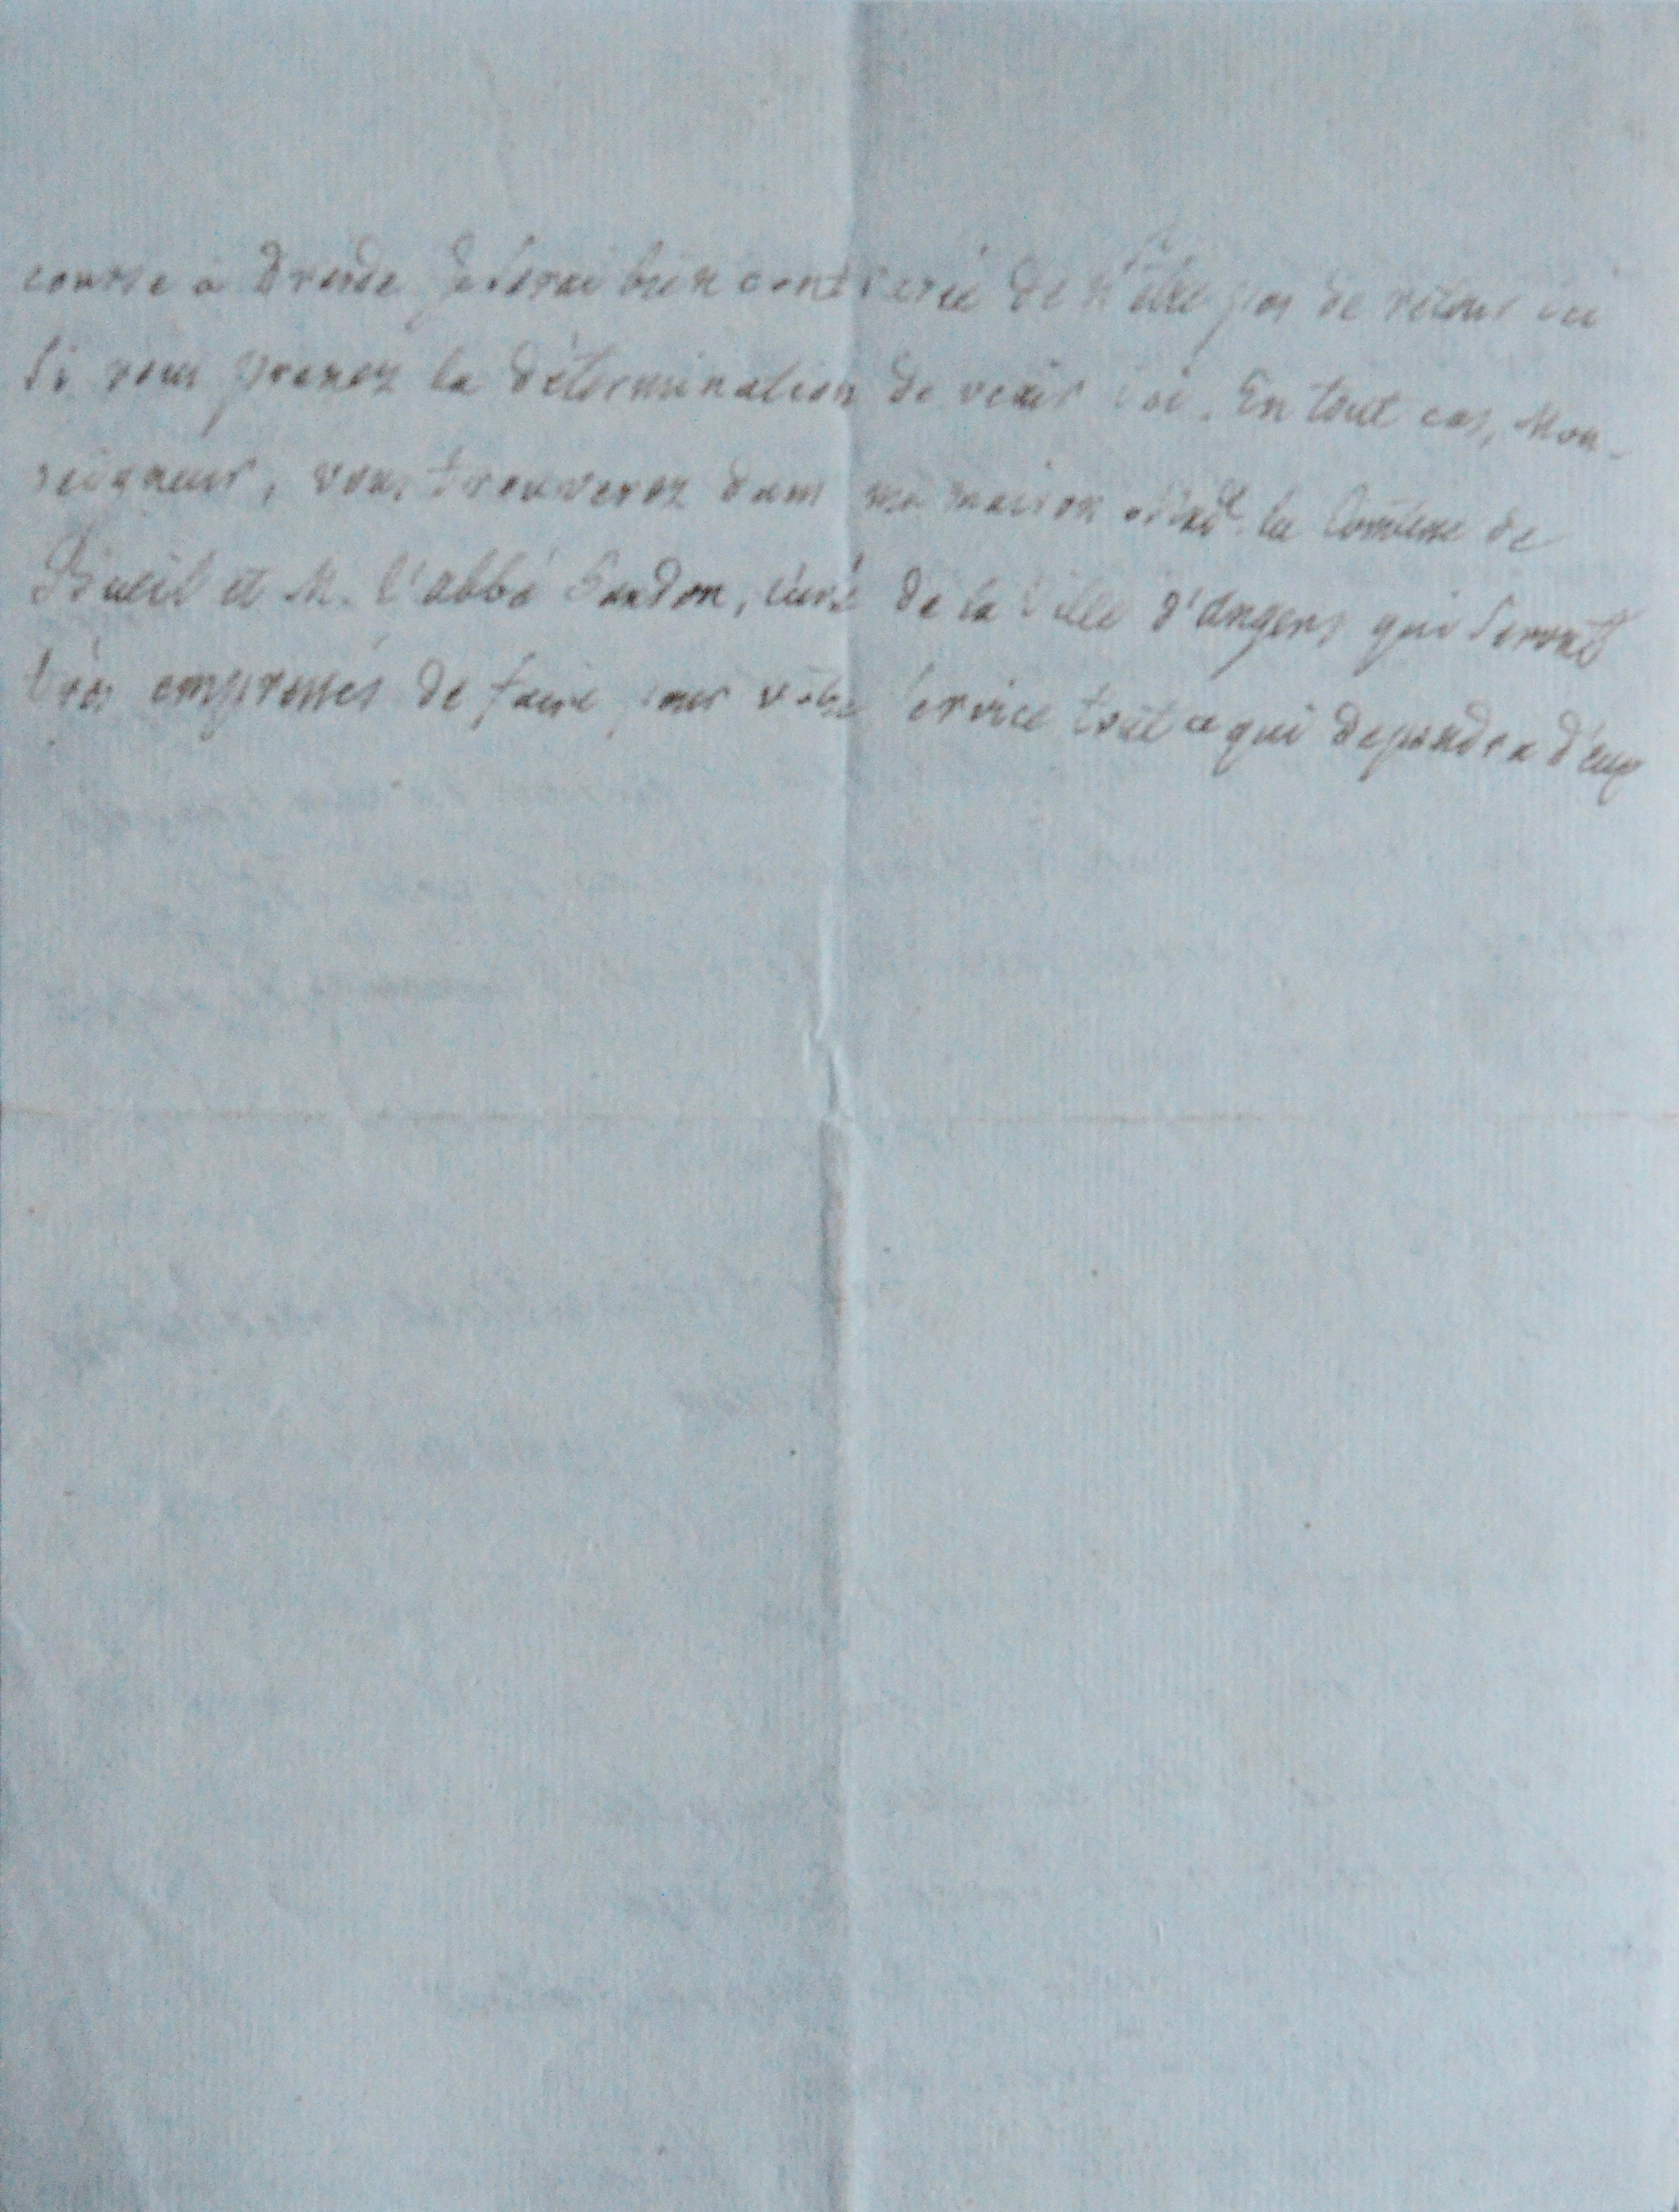 course à Dresde je serai bien contrarié de n'être pas de retour ici
si vous prenez la détermination de venir ici. En tout cas, Mon-
seigneur, vous trouverez dans ma maison Mad.e la Comtesse de
Bueil et M. l'abbé Gaudon, curé de la Ville d'Angers qui seront
très empressés de faire pour votre service tout ce qui dependra d'eux